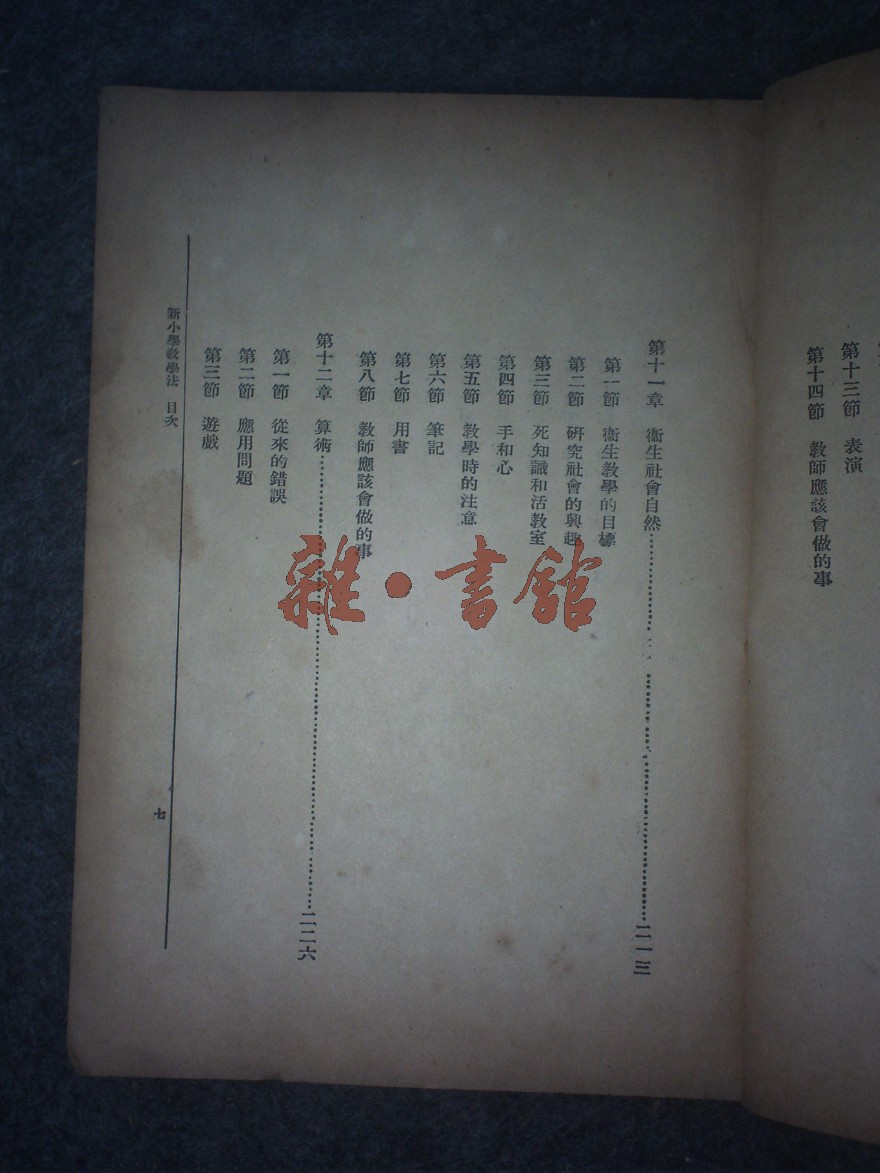 第十三節　表演
第十四節　教師應該會做的事
第十一章　衞生社會自然……二一三
第一節　衞生教學的目標
第二節　研究社會的興趣
第三節　死知識和活教室
第四節　手和心
第五節　教學時的注意
第六節　筆記
第七節　用書
第八節　教師應該會做的事
第十二章　算術……二二六
第一節　從來的錯誤
第二節　應用問題
第三節　遊戲
新小學教學法　目次
七
雜·書館